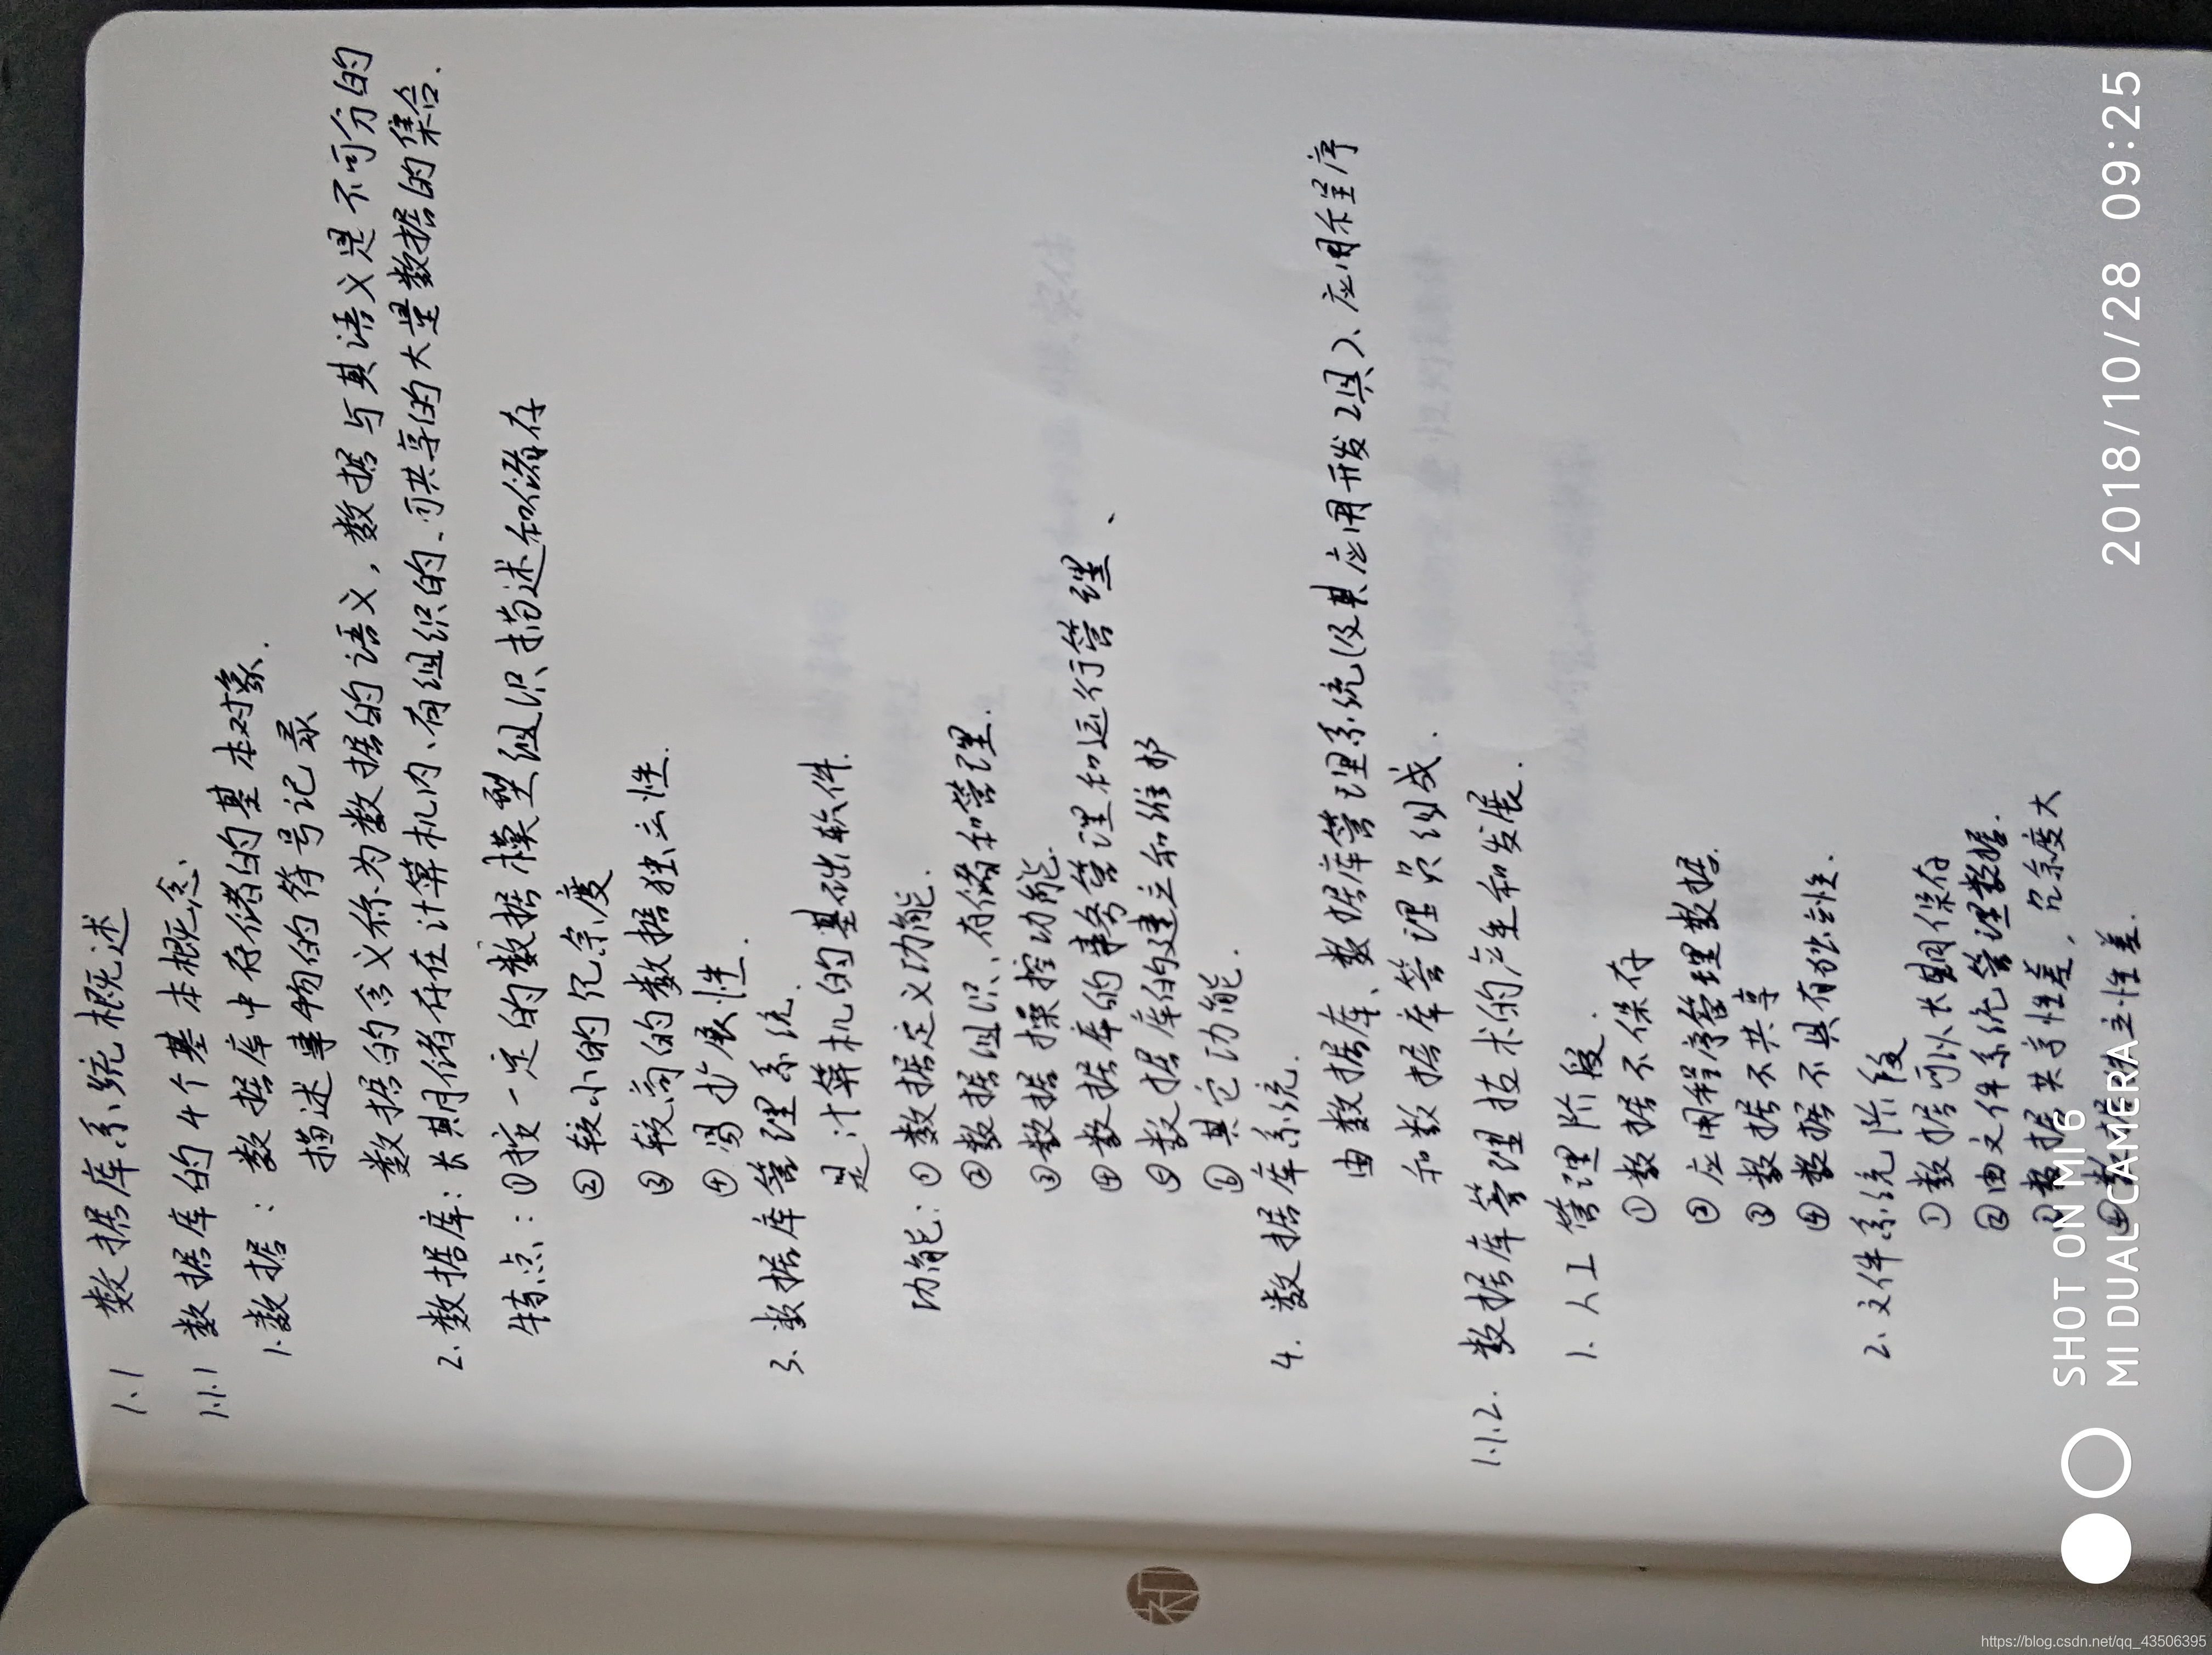 1.1 数据库系统概述
1.1.1 数据库的4个基本概念.
1.数据:数据库中存储的基本对象.
描述事物的符号记录
数据的含义称为数据的语义,数据与其语义是不可分的
2.数据库:长期储存在计算机内、有组织的、可共享的大量数据的集合.
特点:①按一定的数据模型组织描述和储存
②较小的冗余度
③较高的数据独立性.
④易扩展性.
3.数据库管理系统.
是计算机的基础软件.
功能:①数据定义功能.
②数据组织、存储和管理.
③数据操控功能.
④数据库的事务管理和运行管理、
⑤数据库的建立和维护
⑥其它功能.
4.数据库系统.
由数据库、数据库管理系统(及其应用开发工具)、应用程序
和数据库管理员组成.
1.1.2.数据库管理技术的产生和发展.
1.人工管理阶段.
①数据不保存
②应用程序管理数据.
③数据不共享
④数据不具有独立性.
2.文件系统阶段
①数据可以长期保存
②由文件系统管理数据.
③数据共享性差,冗余度大
④数据独立性差.
SHOT ON MI 6
MI DUAL CAMERA
2018/10/28 09:25
https://blog.csdn.net/qq_43506395